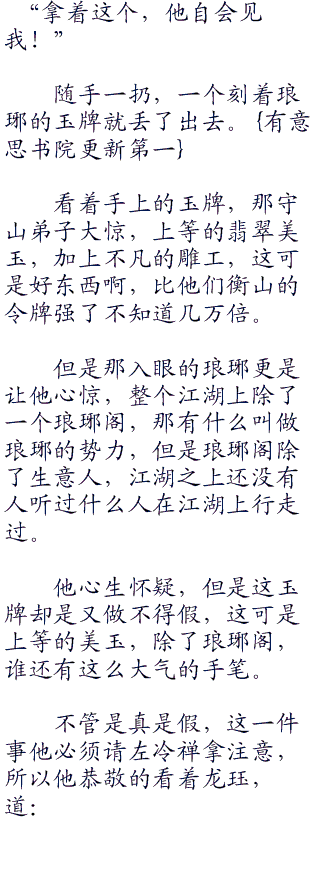 “拿着这个，他自会见
我！”
随手一扔，一个刻着琅
琊的玉牌就丢了出去。{有意
思书院更新第一}
看着手上的玉牌，那守
山弟子大惊，上等的翡翠美
玉，加上不凡的雕工，这可
是好东西啊，比他们衡山的
令牌强了不知道几万倍。
但是那入眼的琅琊更是
让他心惊，整个江湖上除了
一个琅琊阁，那有什么叫做
琅琊的势力，但是琅琊阁除
了生意人，江湖之上还没有
人听过什么人在江湖上行走
过。
他心生怀疑，但是这玉
牌却是又做不得假，这可是
上等的美玉，除了琅琊阁，
谁还有这么大气的手笔。
不管是真是假，这一件
事他必须请左冷禅拿注意，
所以他恭敬的看着龙珏，
道：